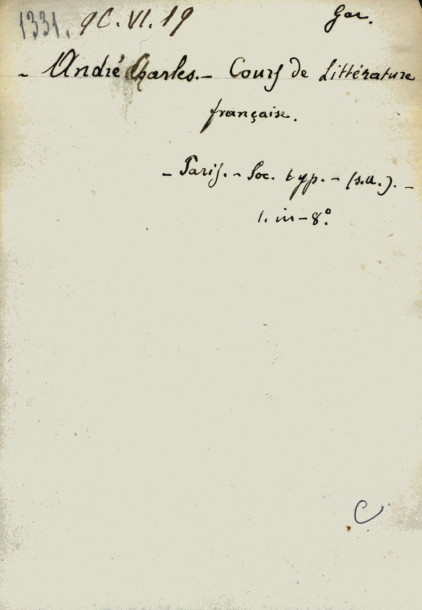 1331. 9C.VI.19
Gar.
- André Charles. - Cours de Littérature
française.
- Paris. - Soc. typ. - (s.a.). -
1. in-8°.
C